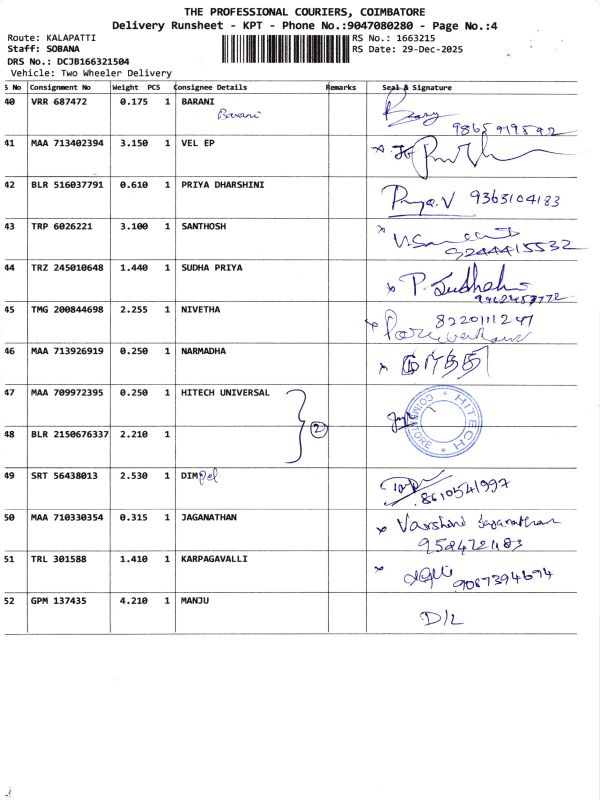 THE PROFESSIONAL COURIERS, COIMBATORE
Delivery Runsheet - KPT - Phone No.:9047080280 - Page No.:4
Route: KALAPATTI RS No.: 1663215
Staff: SOBANA RS Date: 29-Dec-2025
DRS No.: DCJB166321504
Vehicle: Two Wheeler Delivery
S No Consignment No Weight PCS Consignee Details Remarks Seal & Signature
40 VRR 687472 0.175 1 BARANI
Barani
9865919592
41 MAA 713402394 3.150 1 VEL EP
42 BLR 516037791 0.610 1 PRIYA DHARSHINI
Priya.V 9363104183
43 TRP 6026221 3.100 1 SANTHOSH
9244415532
44 TRZ 245010648 1.440 1 SUDHA PRIYA
P. Sudha
45 TMG 200844698 2.255 1 NIVETHA
8220111247
46 MAA 713926919 0.250 1 NARMADHA
47 MAA 709972395 0.250 1 HITECH UNIVERSAL
2
HITECH * COIMBATORE *
48 BLR 2150676337 2.210 1
49 SRT 56438013 2.530 1 DIMpel
8610541997
50 MAA 710330354 0.315 1 JAGANATHAN
Varshini Jaganathan
51 TRL 301588 1.410 1 KARPAGAVALLI
9087394694
52 GPM 137435 4.210 1 MANJU
D/L